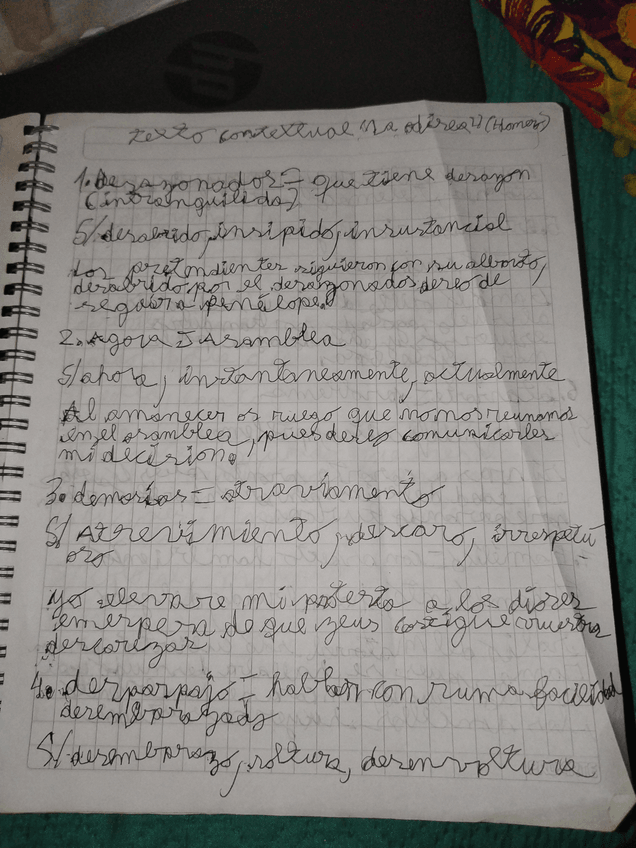 hp
texto contextual "La odisea" (Homero)
1. Desazonador = que tiene desazon
(intranquilida)
S/ desabrido, insipido, insustancial
Los pretendientes siguieron con su alboroto,
desabrido por el desazonados deseo de
segara Penélope.
2. Agora = Asamblea
S/ ahora, instantaneamente, actualmente
Al amanecer os ruego que nos reunamos
en el asamblea, pues deseo comunicarles
mi decision.
3. demasias = atraviamento
S/ Atrevimiento, descaro, irrespetu
oso
yo elevare mi protesta a los dioses
en espera de que zeus castigue vuestras
descarezas
4. desparpajo = hablar con suma facilidad
desembarazada
S/ desembarazo, soltura, desenvoltura